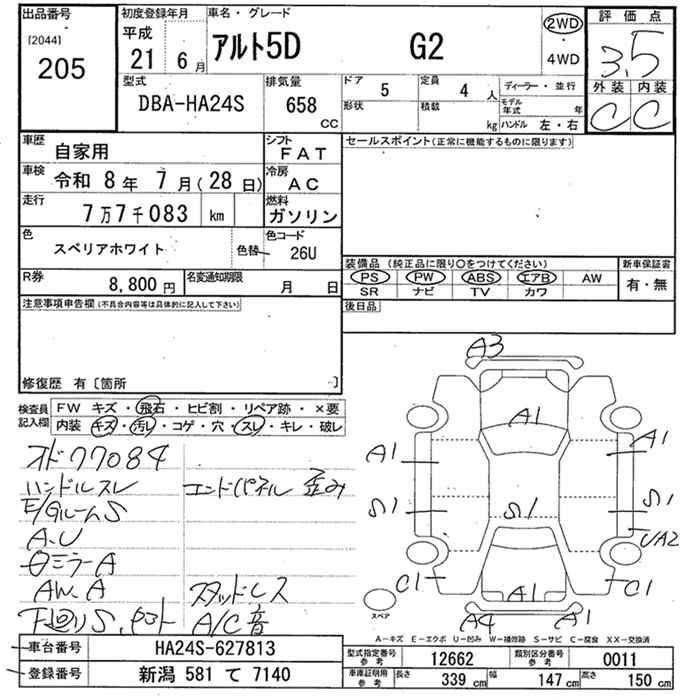 出品番号
[2044]
205
初度登録年月
平成
21 6月
車名・グレード
アルト5D G2
2WD
・
4WD
評価点
3.5
外装 内装
C C
型式
DBA-HA24S
排気量
658 CC
ドア 5
定員 4 人
形状
積載 kg
ディーラー・並行
モデル年式 年
ハンドル 左・右
車歴
自家用
シフト
FAT
車検
令和 8年 7月(28日)
冷房
AC
走行
7万7千083 km
燃料
ガソリン
色
スペリアホワイト
色替
色コード
26U
R券
8,800円
名変通知期限
月 日
セールスポイント(正常に機能するものに限ります)
装備品(純正品に限り○をつけてください)
PS PW ABS エアB AW
SR ナビ TV カワ
新車保証書
有・無
後日品
注意事項申告欄(不具合内容等は具体的に記入して下さい)
修復歴 有〔箇所 〕
検査員
記入欄
FW キズ・飛石・ヒビ割・リペア跡・×要
内装 キズ・汚レ・コゲ・穴・スレ・キレ・破レ
オド77084
ハンドルスレ エンドパネル 歪み
E/GルームS
A.U
ミラーA
AW.A スタッドレス
下廻りS, A/C音
A3
A1
A1 A1
S1 S1 S1
UA2
C1 C1
A1
A4 A1
スペア
A－キズ E－エクボ U－凹み W－補修跡 S－サビ C－腐食 XX－交換済
車台番号
HA24S-627813
登録番号
新潟 581 て 7140
型式指定番号
参考
12662
類別区分番号
参考
0011
車庫証明用
参考
長さ 339 cm
幅 147 cm
高さ 150 cm